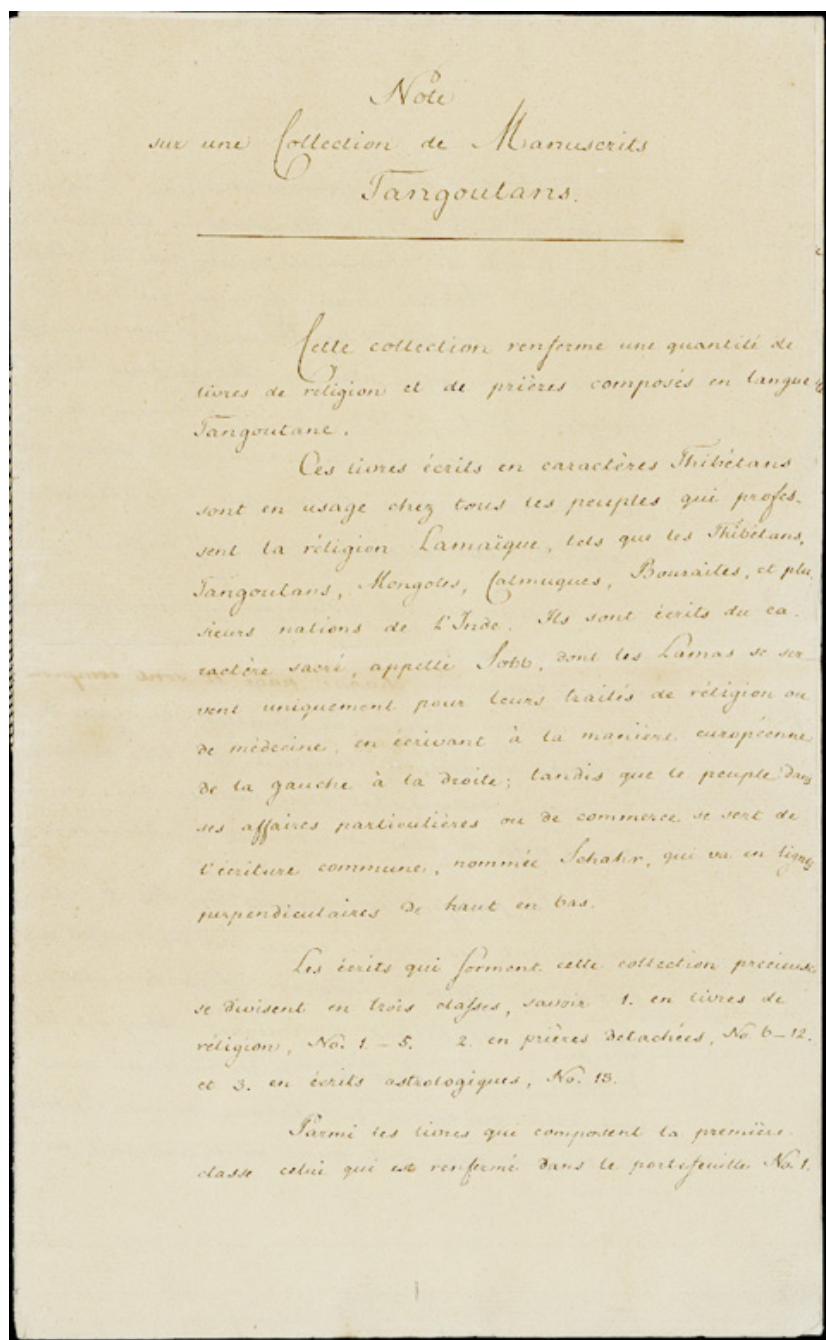 Note
sur une Collection de Manuscrits
Tangoutans.
Cette collection renferme une quantité de
livres de réligion et de prières composés en langue
Tangoutane.
Ces livres écrits en caractères Thibétans
sont en usage chez tous les peuples qui profes-
sent la réligion Lamaïque, tels que les Thibétans,
Tangoutans, Mongoles, Calmuques, Bouraites, et plu
sieurs nations de l'Inde. Ils sont écrits du ca-
ractère sacré, appellé dont les Lamas se ser
vent uniquement pour leurs traités de réligion ou
de médecine, en écrivant à la manière européenne
de la gauche à la droite; tandis que le peuple dans
ses affaires particulières ou de commerce se sert de
l'écriture commune, nommée Schahr, qui va en lignes
perpendiculaires de haut en bas.
Les écrits qui forment cette collection précieuse
se divisent en trois classes, savoir 1. en livres de
réligion, No. 1 - 5. 2. en prières detachées, No 6-12.
et 3. en écrits astrologiques, No. 13.
Parmi les livres qui composent la première
classe celui qui est renfermé dans le portefeuille No. 1.